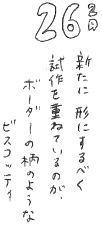 26日目
新たに形にするべく
試作を重ねているのが、
ボーダーの柄のような
ビスコッティ